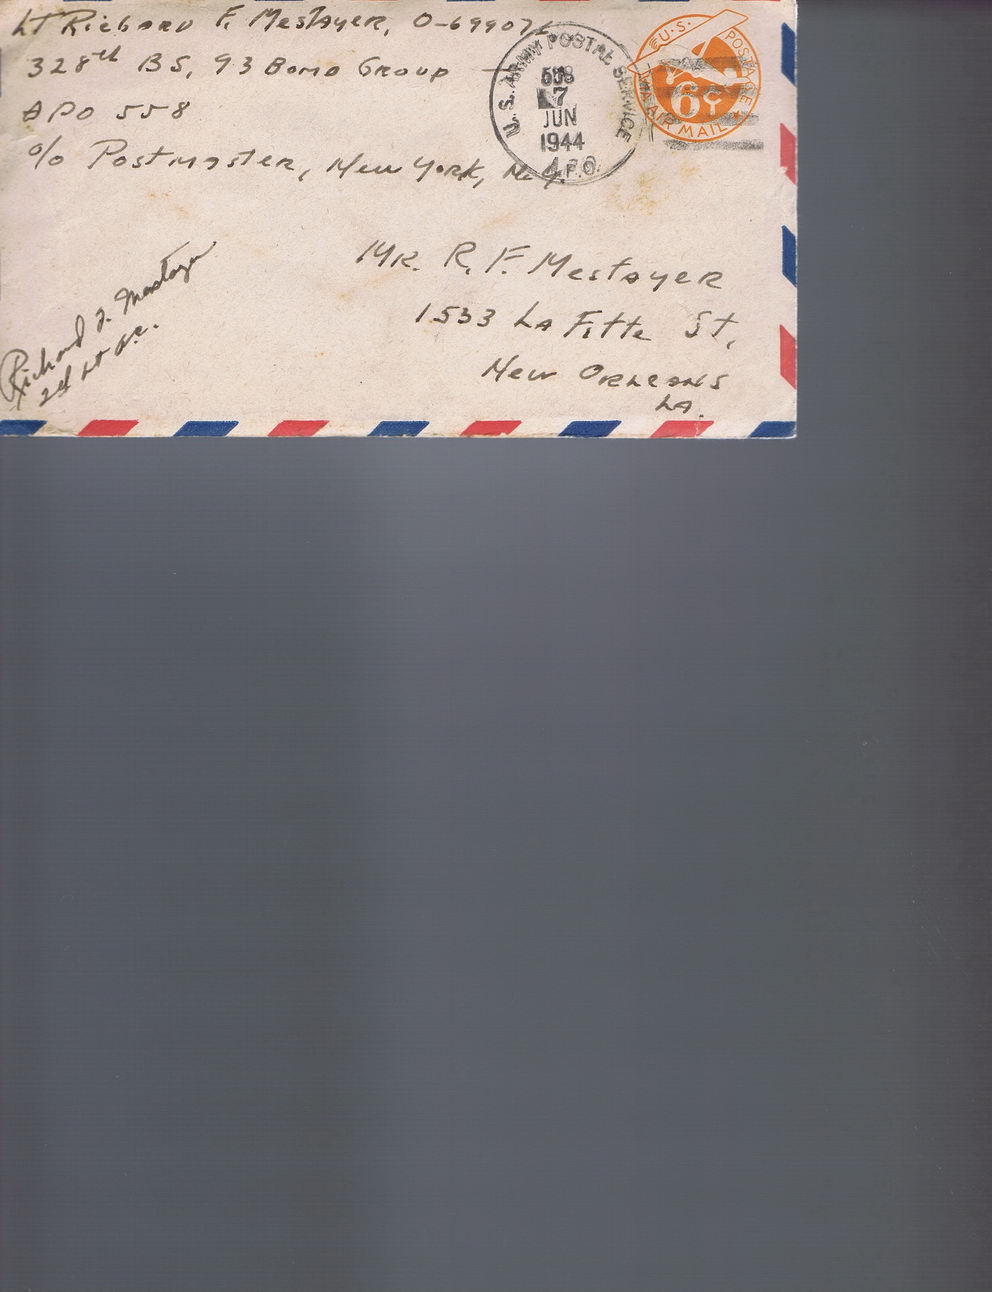 Lt Richard F. Mestayer, O-699076
328th BS, 93 Bomb Group
APO 558
c/o Postmaster, New York, N.Y.
U.S. ARMY POSTAL SERVICE
558
7
JUN
1944
A.P.O.
U.S. POSTAGE
6¢
VIA AIR MAIL
Mr. R. F. Mestayer
1533 La Fitte St,
New Orleans
La.
Richard F. Mestayer
2d Lt A.C.